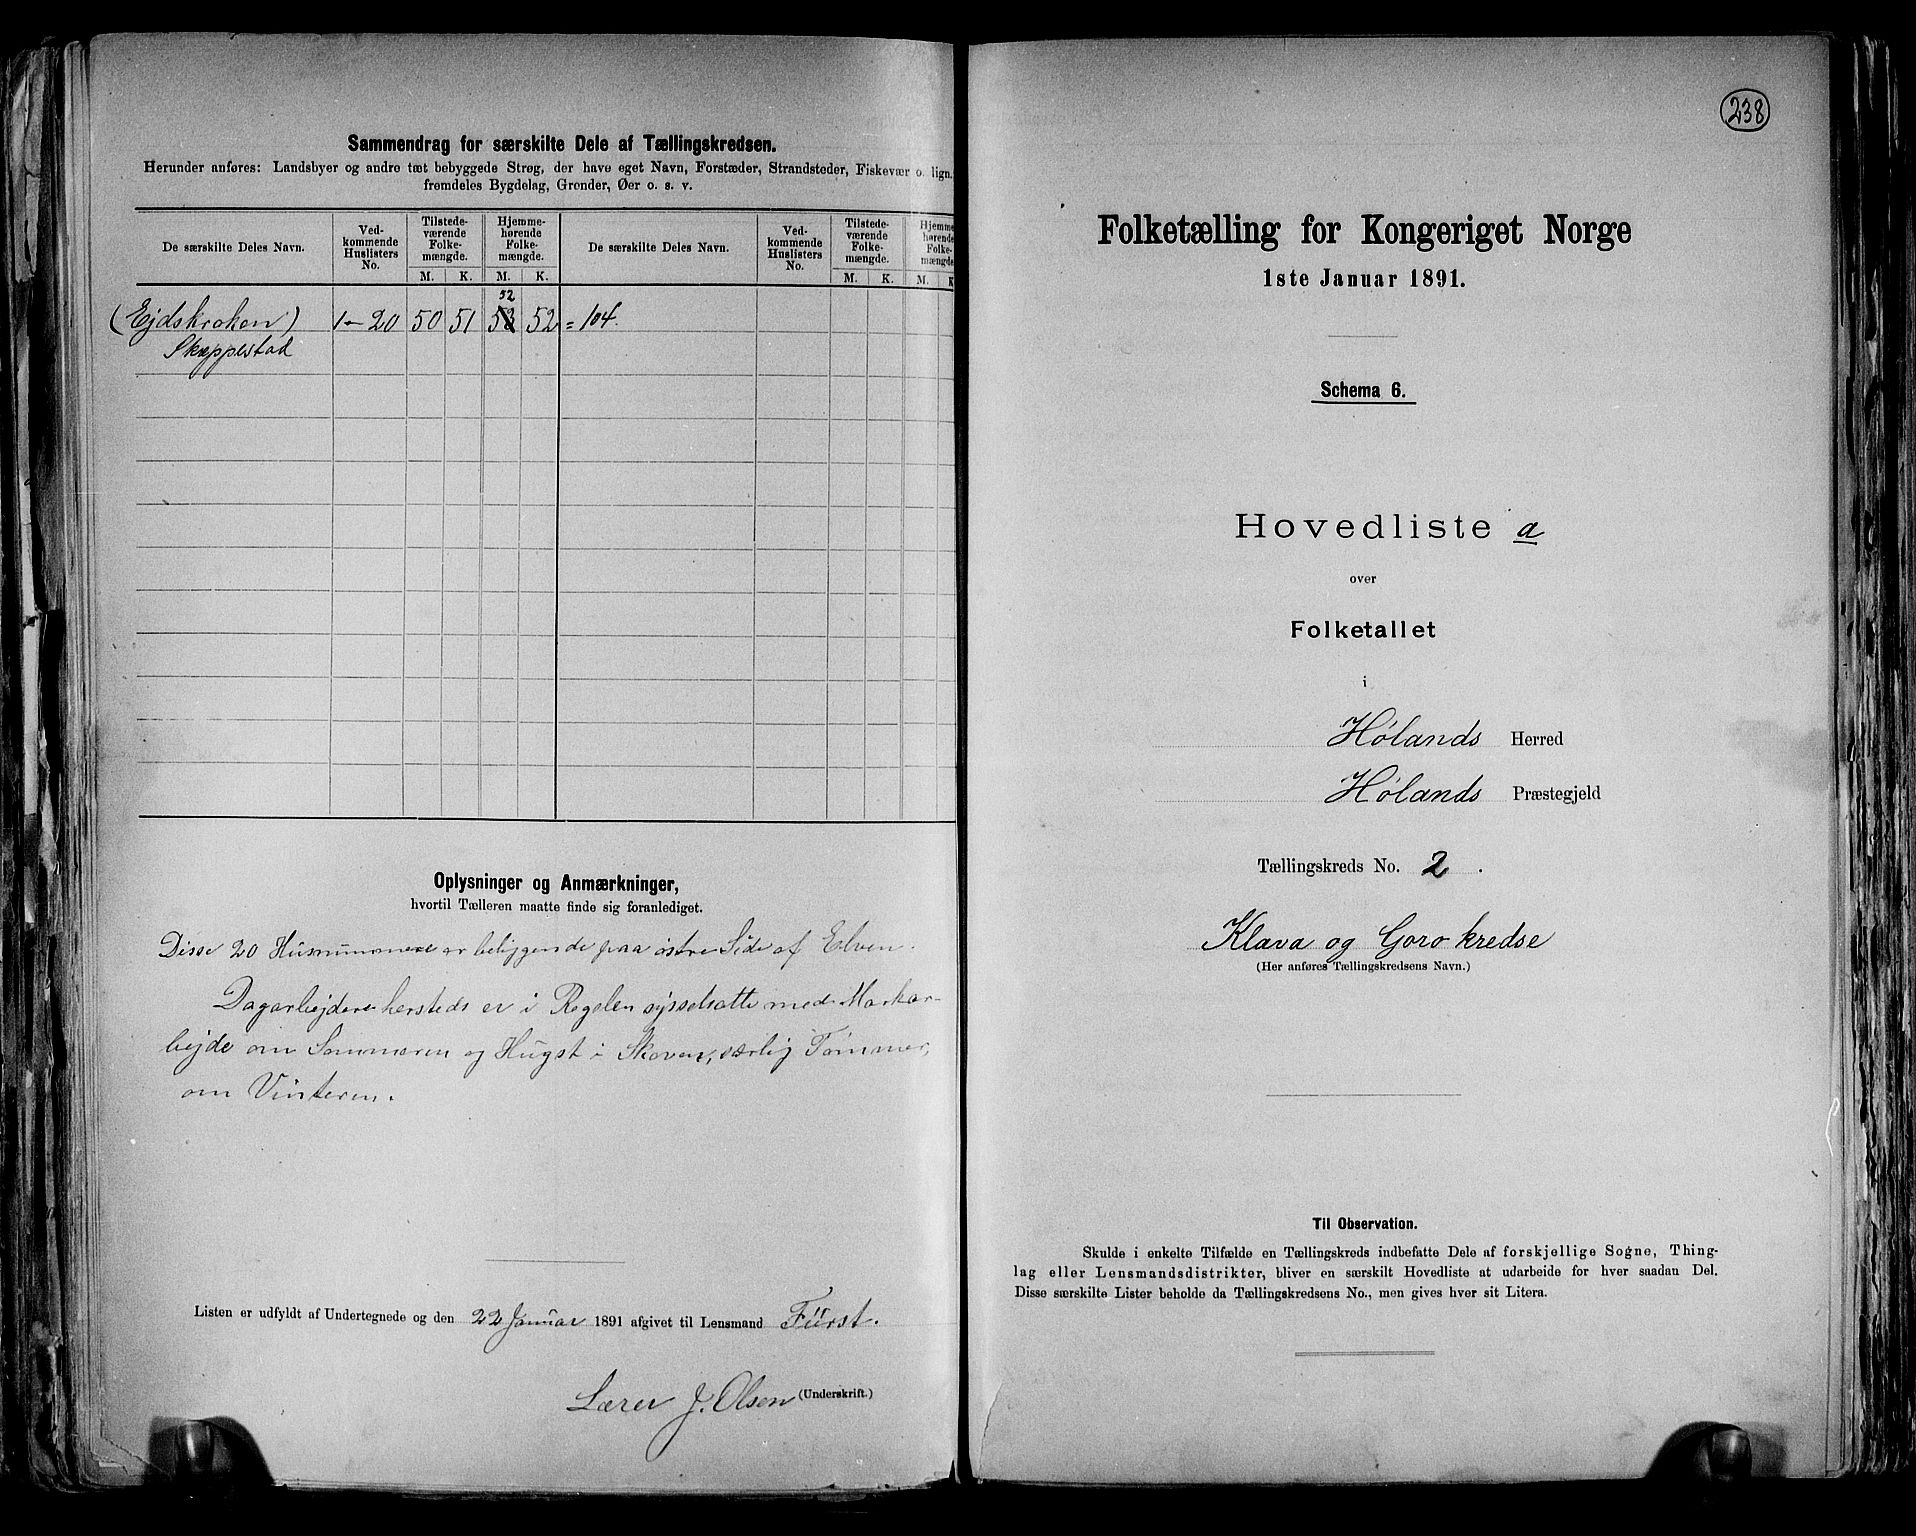 Sammendrag for særskilte Dele af Tællingskredsen.
Herunder anføres: Landsbyer og andre tæt bebyggede Strøg, der have eget Navn, Forstæder, Strandsteder, Fiskevær o. lign.
fremdeles Bygdelag, Grender, Øer o. s. v.
De særskilte Deles Navn.
Ved-
kommende
Huslisters
No.
Tilstede-
værende
Folke-
mængde.
Hjemme-
hørende
Folke-
mængde.
De særskilte Deles Navn.
Ved-
kommende
Huslisters
No.
Tilstede-
værende
Folke-
mængde.
Hjemme-
hørende
Folke-
mængde
M. K. M. K. M. K. M. K
52
(Ejdskroken) 1-20 50 51 53 52 = 104.
Skæppestad
Oplysninger og Anmærkninger,
hvortil Tælleren maatte finde sig foranlediget.
Disse 20 Husnummere er beliggende paa østre Side af Elven.
Dagarbejdere hersteds er i Regelen sysselsatte med Markar-
bejde om Sommeren og Hugst i Skoven, særlig Tømmer,
om Vinteren.
Listen er udfyldt af Undertegnede og den 22 Januar 1891 afgivet til Lensmand Fürst.
Lærer J. Olsen (Underskrift.)
238
Folketælling for Kongeriget Norge
1ste Januar 1891.
Schema 6.
Hovedliste a
over
Folketallet
i
Hølands Herred
Hølands Præstegjeld
Tællingskreds No. 2.
Klava og Goro kredse
(Her anføres Tællingskredsens Navn.)
Til Observation.
Skulde i enkelte Tilfælde en Tællingskreds indbefatte Dele af forskjellige Sogne, Thing-
lag eller Lensmandsdistrikter, bliver en særskilt Hovedliste at udarbeide for hver saadan Del.
Disse særskilte Lister beholde da Tællingskredsens No., men gives hver sit Litera.